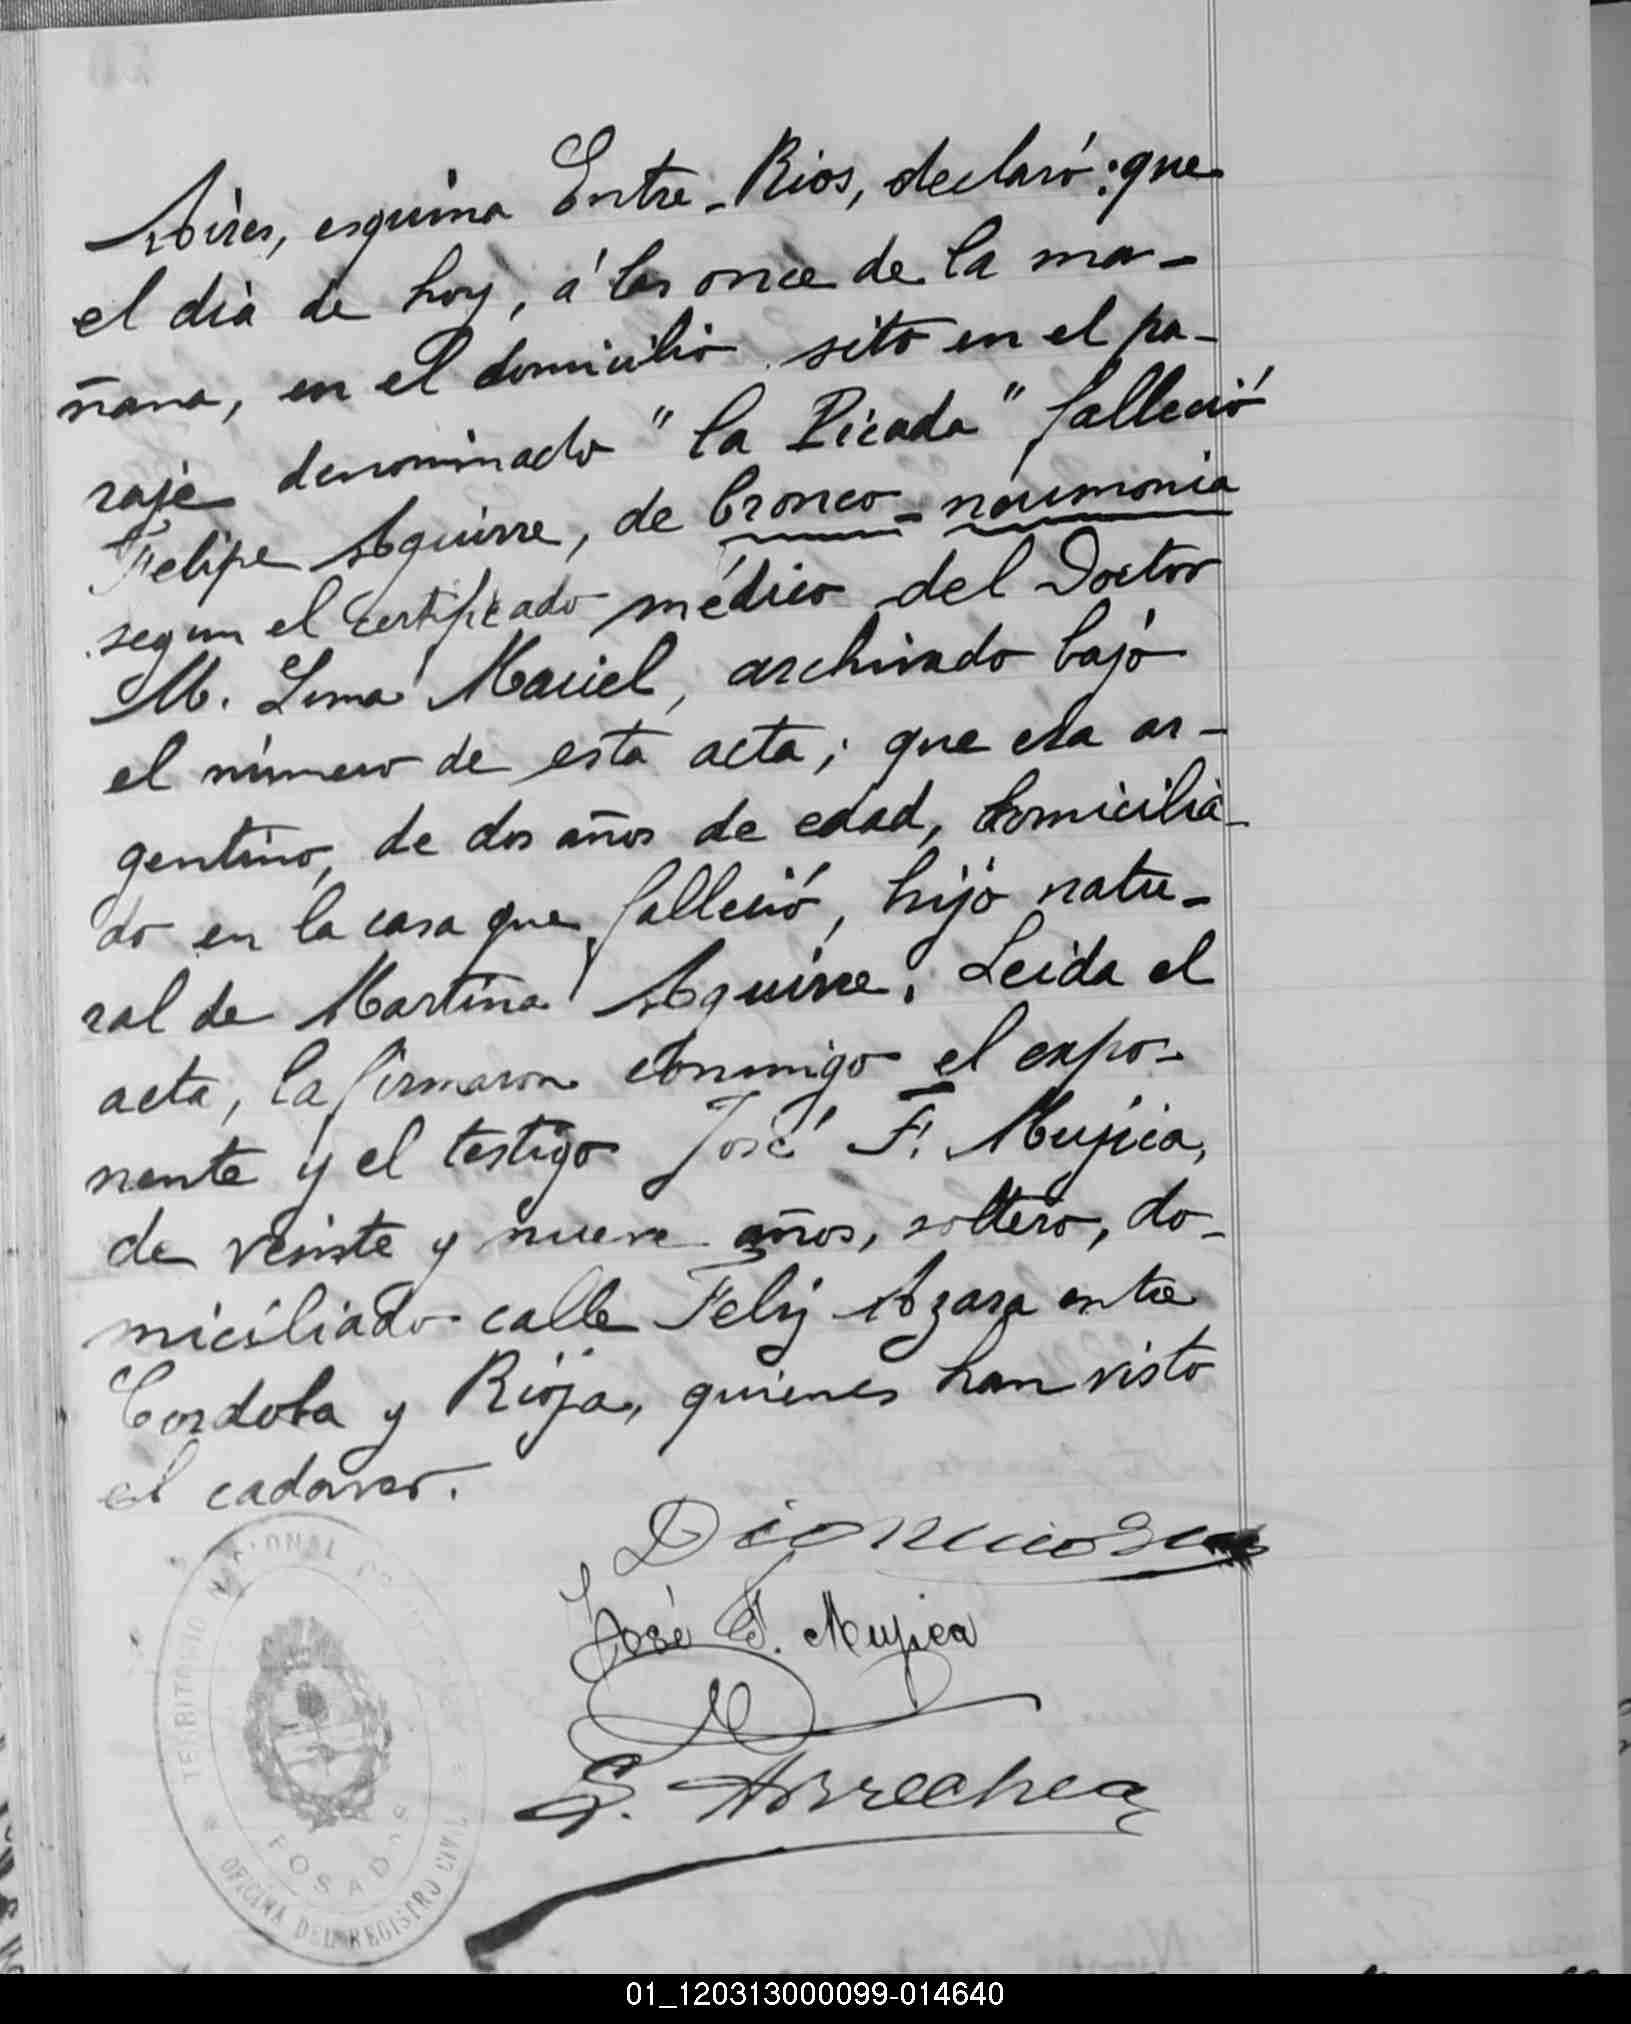 Aires, esquina Entre-Rios, declaró: que
el dia de hoy, á las once de la ma-
ñana, en el domicilio sito en el pa-
raje denominado "La Picada" falleció
Felipe Aguirre, de bronco-neumonia
segun el certificado médico del Doctor
M. Lima Maciel, archivado bajo
el número de esta acta; que era ar-
gentino, de dos años de edad, domicilia-
do en la casa que falleció, hijo natu-
ral de Martina Aguirre. Leida el
acta, la firmaron conmigo el expo-
nente y el testigo José F. Mujica,
de veinte y nueve años, soltero, do-
miciliado calle Feliz Azara entre
Cordoba y Rioja, quienes han visto
el cadaver.
José F. Mujica
S. Arrechea
TERRITORIO NACIONAL
POSADAS
OFICINA DEL REGISTRO CIVIL
01_120313000099-014640